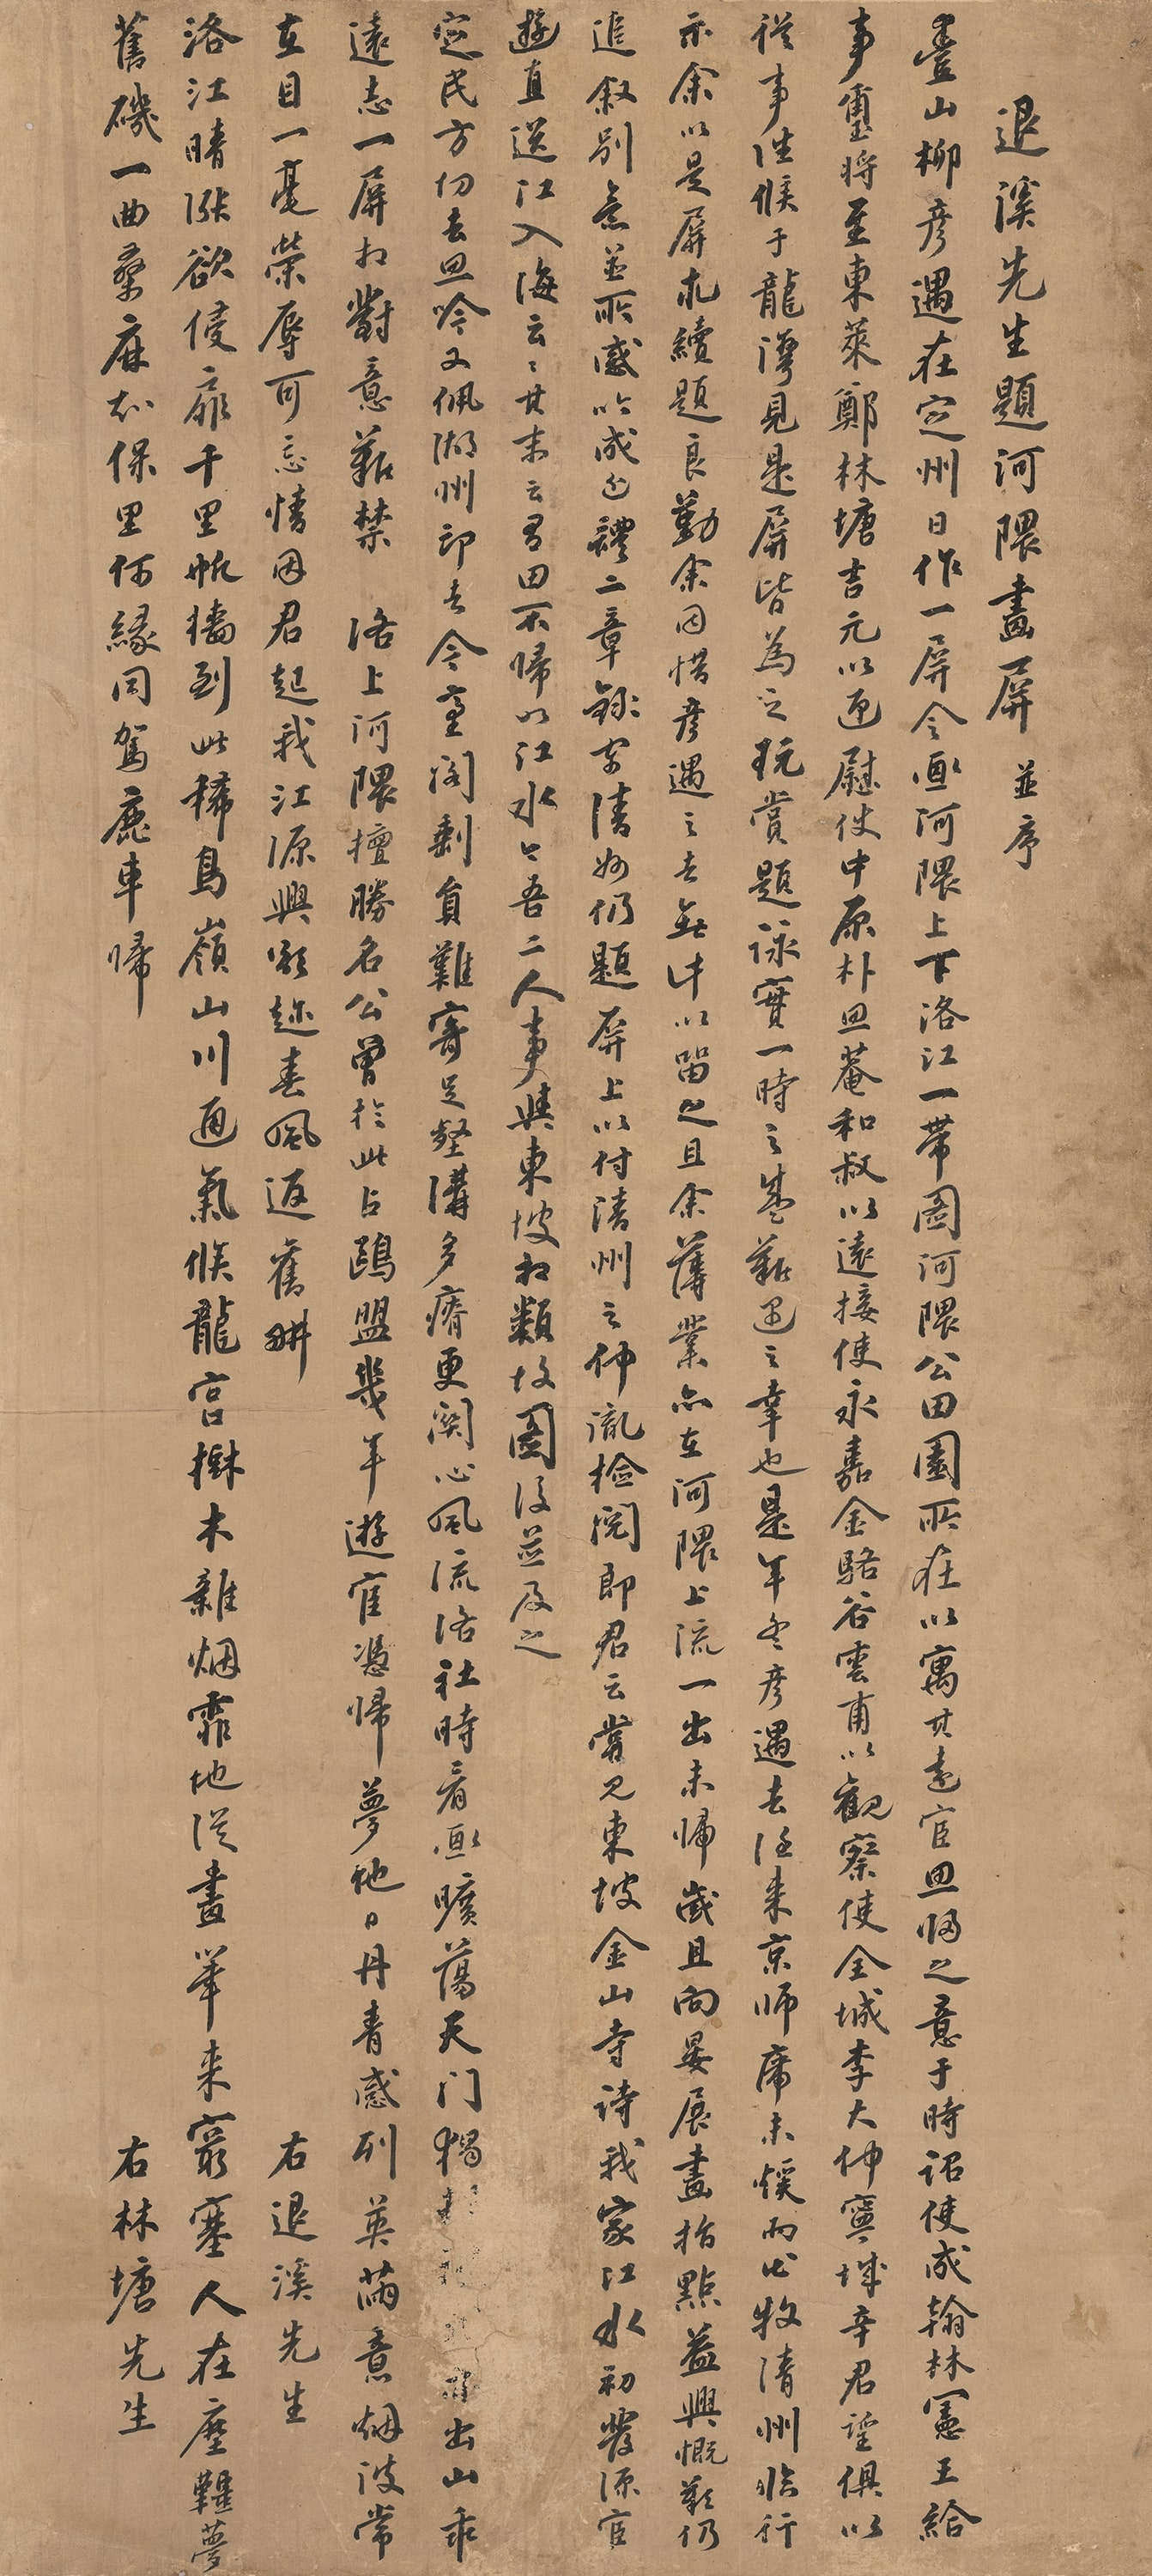 退溪先生題河隈畫屛 並序
豊山柳彦遇在定州日作一屛令画河隈上下洛江一帶圖河隈公田園所在以寓其遠宦思歸之意于時詔使成翰林憲王給
事璽將至東萊鄭林塘吉元以迎慰使中原朴思菴和叔以遠接使永嘉金駱谷雲甫以觀察使全城李大仲寧城辛君望俱以
從事徃候于龍灣見是屛皆爲之玩賞題詠實一時之盛難遇之幸也是年冬彦遇去任来京師席未煖而出牧淸州臨行
示余以是屛求續題良勤余因惜彦遇之去無計以留之且余薄業亦在河隈上流一出未歸歲且向晏展畫指點益興慨歎仍
追叙別意並所感吟成近體二章錄寄淸妙仍題屛上以付淸州之仲胤檢閱郎君云嘗見東坡金山寺詩我家江水初發源宦
遊直送江入海云々其末云有田不歸如江水今吾二人事與東坡相類故圖後並及之
定民方切去思吟又佩湖州印去今臺閣剩負難寄足壑溝多瘠更関心風流洛社時看画曠蕩天门獨 出山乖
遠志一屛相對意難禁 洛上河隈擅勝名公曾於此占鷗盟幾年遊宦憑歸夢他日丹青感列英滿意烟波常
在目一毫榮辱可忘情因君起我江源興欲趂春風返舊畊 右退溪先生
洛江晴漲欲侵扉千里帆檣到此稀鳥嶺山川通氣候龍宮樹木雜烟霏地從畫筆来窮塞人在塵韁夢
舊磯一曲桑麻知保里何緣同駕鹿車歸 右林塘先生